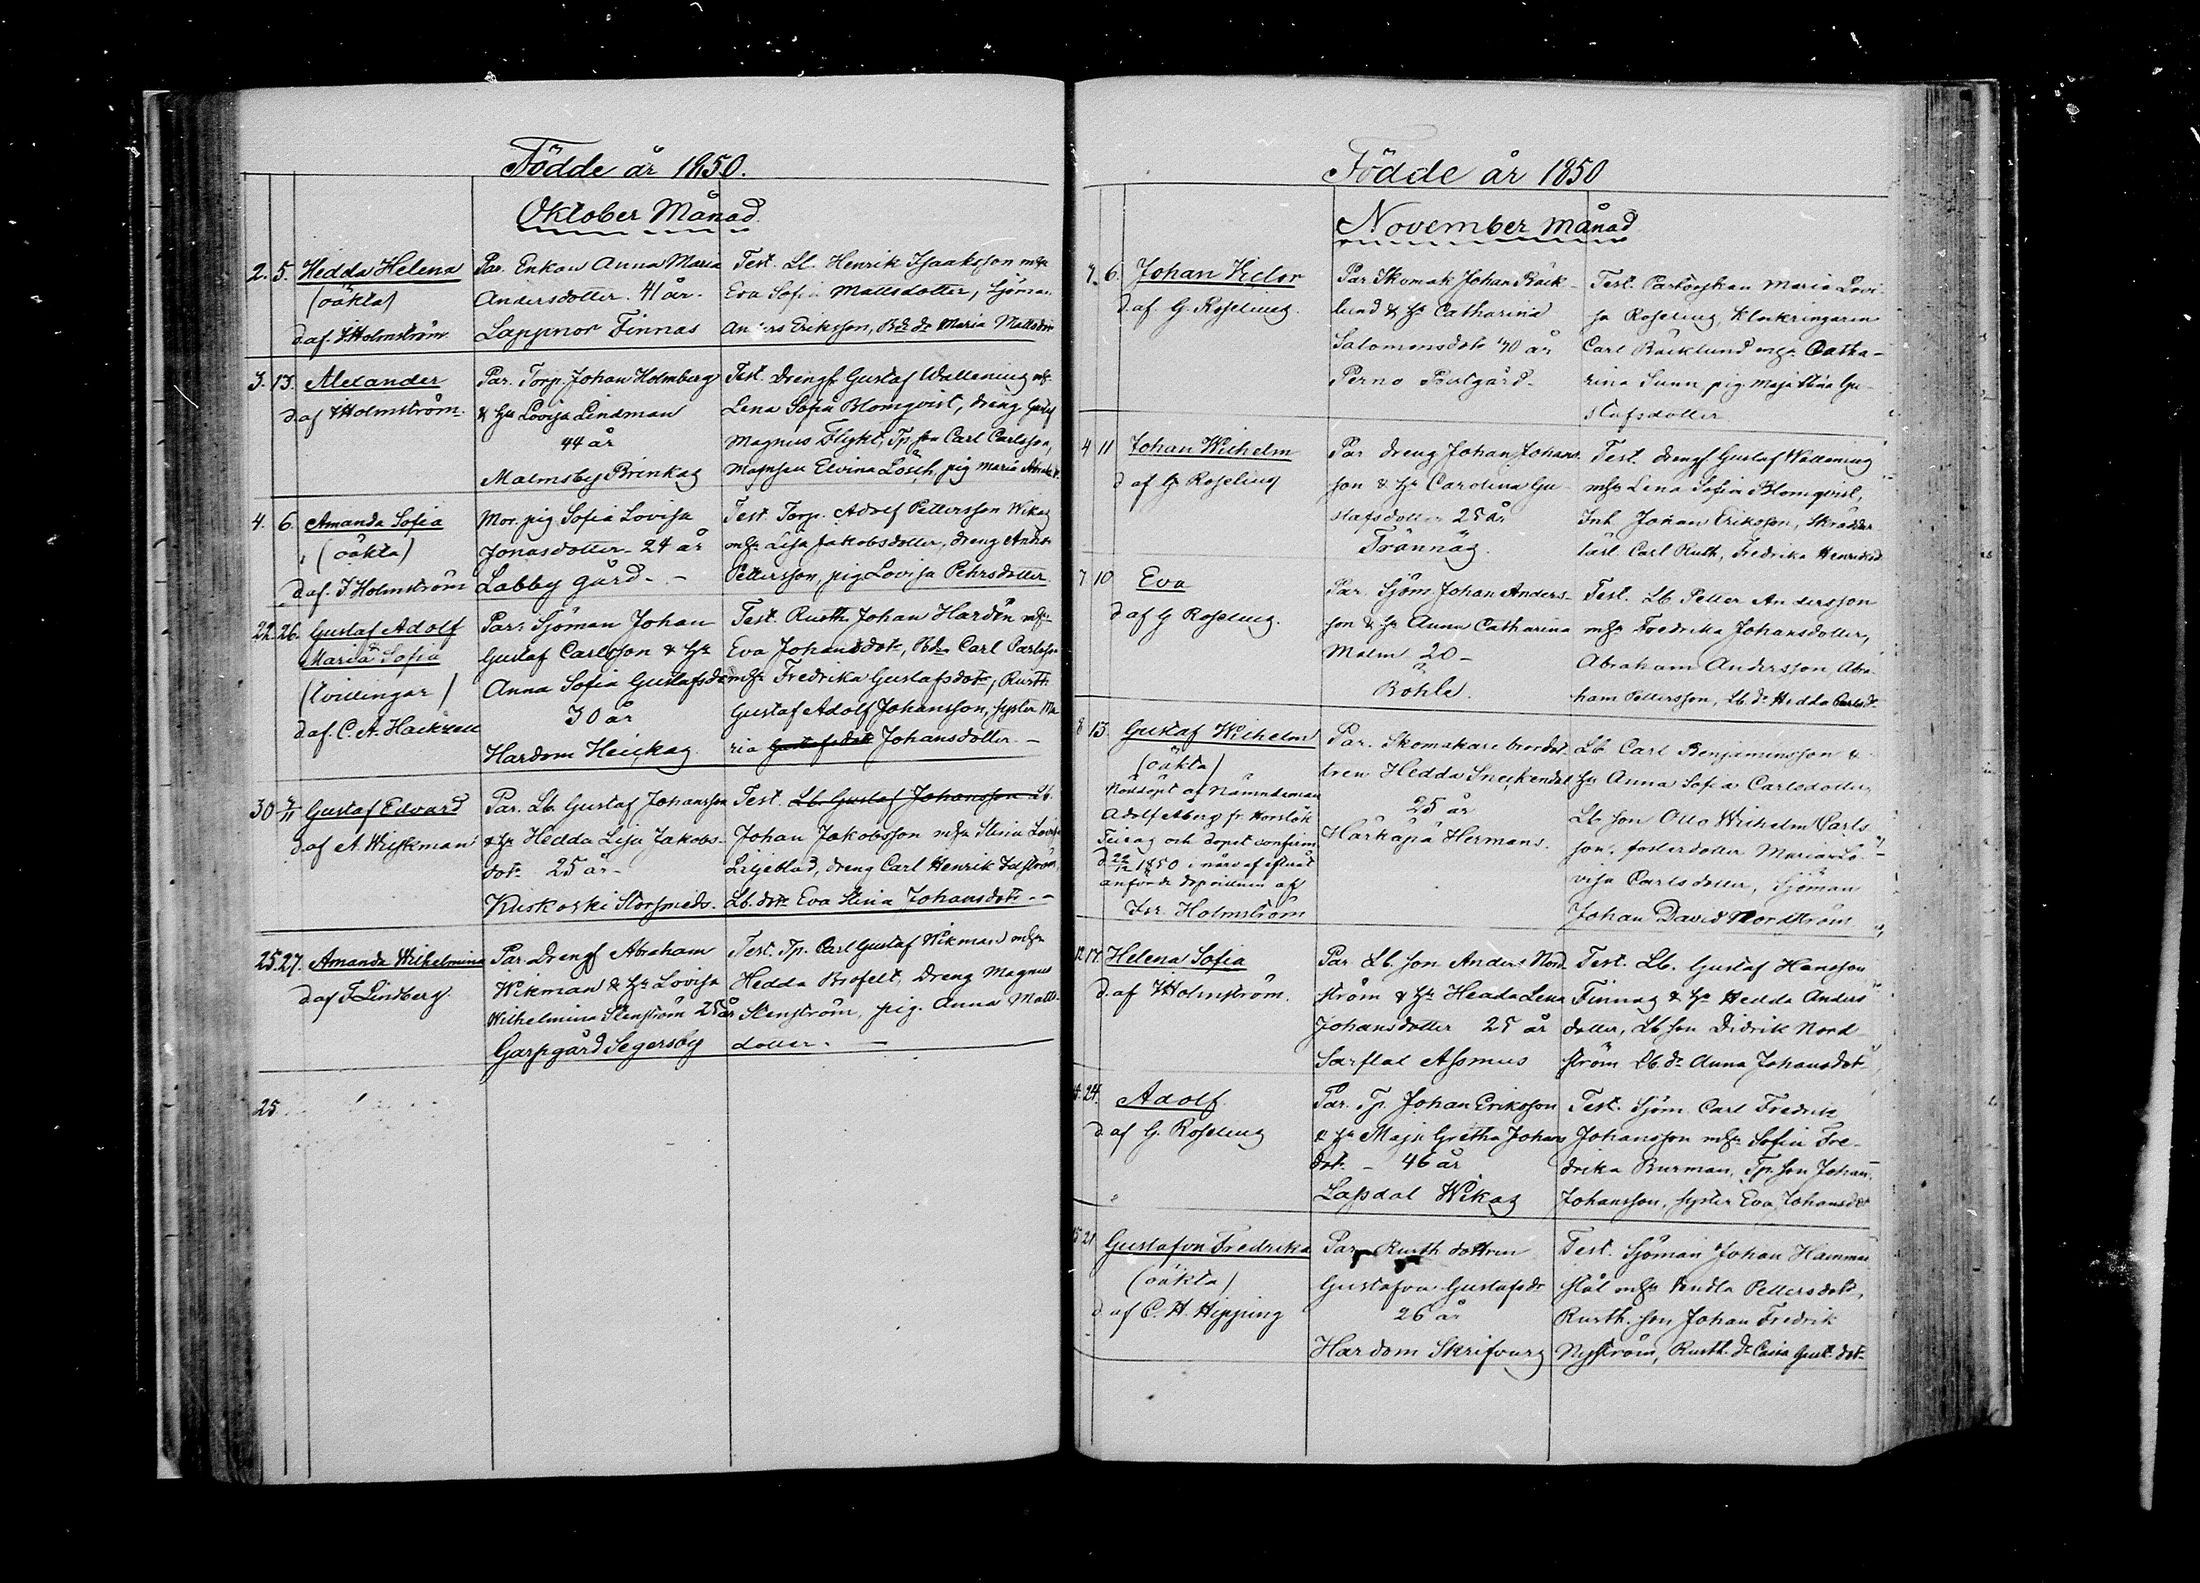 Födde år 1850.
Oktober Månad.
2. 5. Hedda Helena
(oäkta)
d. af. I Holmström
Par. Enkan Anna Maria
Andersdotter. 41 år.
Lappnor Finnas
Test. Lb. Henrik Isaaksson mhr
Eva Sofia Mattsdotter, Sjöman
Anders Eriksson, Bd. dr Maria Mattsdotr
3. 13. Alexander
d af I Holmström.
Par. Torp. Johan Holmberg
& hr Lovisa Lindman
44 år
Malmsby Brinkas
Test. Drengf Gustaf Wallening mhr
Lena Sofia Blomqvist, dreng Gustaf
Magnus Flykt, Tp. son Carl Carlsson,
Maria
4. 6. Amanda Sofia
(oäkta)
d af. I Holmström
Mor. pig Sofia Lovisa
Jonasdotter. 24 år
Labby gård.
Test. Torp. Adolf Pettersson Wikas
mhr Lisa Jakobsdotter, dreng Anders
Pettersson, pig Lovisa Pehrsdotter.
22. 26. Gustaf Adolf
Maria Sofia
(tvillingar)
d af. C. A. Hackzell
Par: Sjöman Johan
Gustaf Carlsson & hr
Anna Sofia Gustafsdr
30 år
Hardom Heickas
Test. Rusth. Johan Hardén mhr
Eva Johansdotr, Bd. Carl Carlsson
mhr Fredrika Gustafsdotr, Rusth
Gustaf Adolf Johansson, syster Ma
ria Gustafsdotr Johansdotter.
30 3/11 Gustaf Edvard
d. af A. Wiskman
Par. Lb. Gustaf Johansson
& hr Hedda Lisa Jakobs-
dotr 25 år.
Kuskoski Storsmeds.
Test. Lb. Gustaf Johansson Lb.
Johan Jakobsson mhr Stina Lovisa
Liljeblad, dreng Carl Henrik
Lb. dotr Eva Stina Johansdotr.
25. 27. Amanda Wilhelmina
d af F Lindberg.
Par. Drengf Abraham
Wikman & hr Lovisa
Wilhelmina Stenström 25 år
Garpgård Segersby
Test. Tp. Carl Gustaf Wikman mhr
Hedda Brofelt, Dreng Magnus
Stenström, pig. Anna Matts-
dotter.
25
Födde år 1850
November Månad
3. 6. Johan Victor
d af G. Roseling.
Par Skomak Johan Bäck-
lund & hr Catharina
Salomonsdotr 40 år
Perno Prestgård.
Test. Maria Lovi
sa Roseling, Klockringaren
Carl Bäcklund mhr Catha-
rina Sunn, pig. Maja Stina Gu-
stafsdotter
4 11 Johan Wilhelm
d af G. Roseling
Par dreng Johan Johans-
son & hr Carolina Gu-
stafsdotter 25 år
Trännäs.
Test. drengf Gustaf Wallening
mhr Lena Sofia Blomqvist,
Inh. Johan Eriksson, Skrädder
lärl. Carl Ruth, Fredrika Henriksdr
7 10 Eva
d af G Roseling.
Par Sjöm. Johan Anders-
son & hr Anna Catharina
Malm 20
Böhle.
Test. Lb Petter Andersson
mhr Fredrika Johansdotter,
Abraham Andersson, Abra
ham Pettersson, Lb. dr Hedda Carlsdr
8 13. Gustaf Wilhelm
(oäkta)
Nöddöpt af Nämndeman
Adolf Åberg fr. Horslök
Feirag och dopet confirm
d. 22/12 1850 i närv af efteråt
anförde dopvittnen af
Isr. Holmström
Par. Skomakare
Hedda
25 år
Härkäpä Hermans.
Lb Carl Benjaminsson &
hr Anna Sofia Carlsdotter,
Lb son Otto Wilhelm Carls
son, fosterdotter Maria Lo-
visa Carlsdotter, Sjöman
Johan David Nordström
12 17. Helena Sofia
d. af I Holmström.
Par Lb. son Anders Nord
ström & hr Hedda Lena
Johansdotter 25 år
Sarflat Assmus
Test. Lb. Gustaf Hansson
Finnas & hr Hedda Anders
dotter, Lb. son Didrik Nord-
ström Lb. dr Anna Johansdotr
24. Adolf
d. af G. Roseling
Par. Tp. Johan Eriksson
& hr Maja Gretha Johans
dotr – 46 år
Lapdal Wikas
Test. Sjöm. Carl Fredrik
Johansson mhr Sofia Fre-
drika Burman, Tp. son Johan
Johansson, syster Eva Johansdotr
15 21 Gustafva Fredrika
(oäkta)
d. af C. H. Hipping
Par Rusth dottren
Gustafva Gustafsdr
26 år
Hardom Skrifvars
Test. Sjöman Johan Hammar
stål mhr Vendla Pettersdotr,
Rusth. son Johan Fredrik
Nyström, Rusth. dr Caisa Gust. dotr